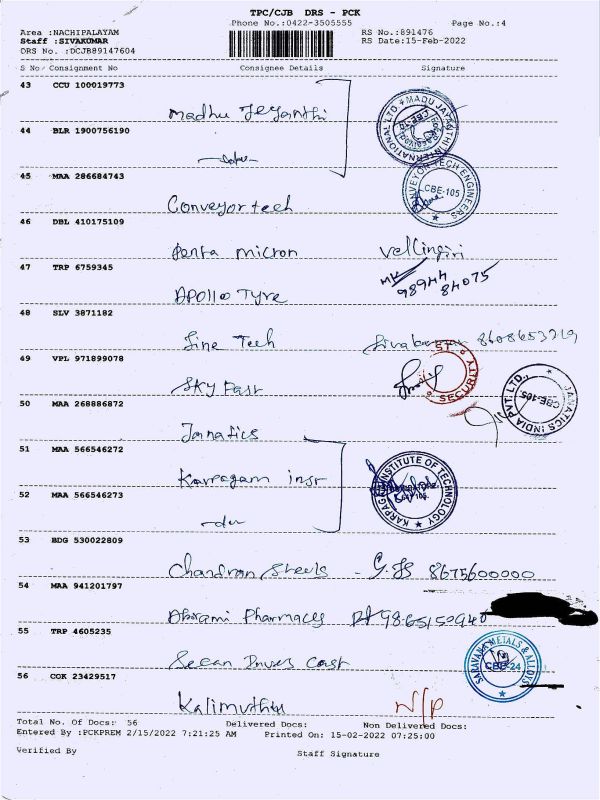 TPC/CJB DRS - PCK
Phone No.:0422-3505555
Page No.:4
Area :NACHIPALAYAM
RS No.:891476
Staff :SIVAKUMAR
RS Date:15-Feb-2022
DRS No. :DCJB89147604
S No Consignment No Consignee Details Signature
43 CCU 100019773
Madhu Jeyanthi
MADU JAYANTHI INTERNATIONAL LTD
44 BLR 1900756190
45 MAA 286684743
Conveyor tech
CONVEYOR TECH ENGINEERS
CBE-105
46 DBL 410175109
Penta micron Vellingiri
47 TRP 6759345
98944
84075
Apollo Tyre
48 SLV 3871182
Fine Tech
49 VPL 971899078
Sky Fast
SECURITY
50 MAA 268886872
Janatics
JANATICS INDIA PVT. LTD.,
CBE-105
51 MAA 566546272
Karpagam inst
KARPAGAM INSTITUTE OF TECHNOLOGY
52 MAA 566546273
53 BDG 530022809
Chandran Steels - 8675600000
54 MAA 941201797
Abirami Pharmacy 9865152940
55 TRP 4605235
SARAVANA METALS & ALLOYS
CBE-24
56 COK 23429517
Kalimuthu N/P
Total No. Of Docs: 56 Delivered Docs: Non Delivered Docs:
Entered By :PCKPREM 2/15/2022 7:21:25 AM Printed On: 15-02-2022 07:25:00
Verified By Staff Signature